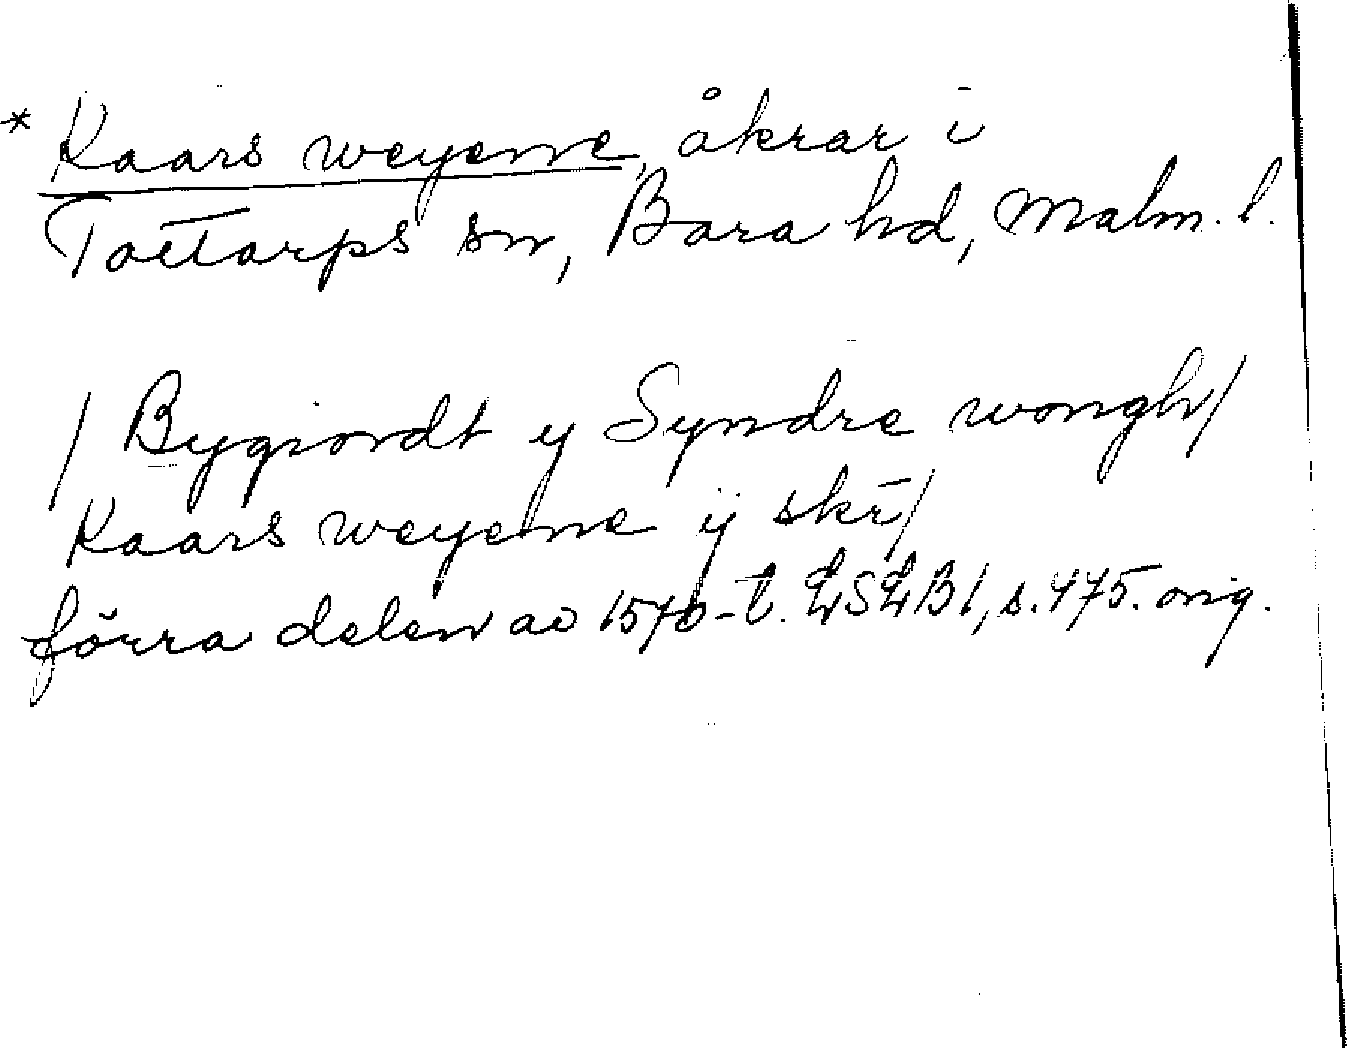 * Kaars weyerne, åkrar i
Tottarps sn, Bara hd, Malm. l.
/ Bygiordt y Syndre wongh/
Kaars weyerne ÿ skr/
förra delen av 1570-t. LSLB1, s. 475. orig.